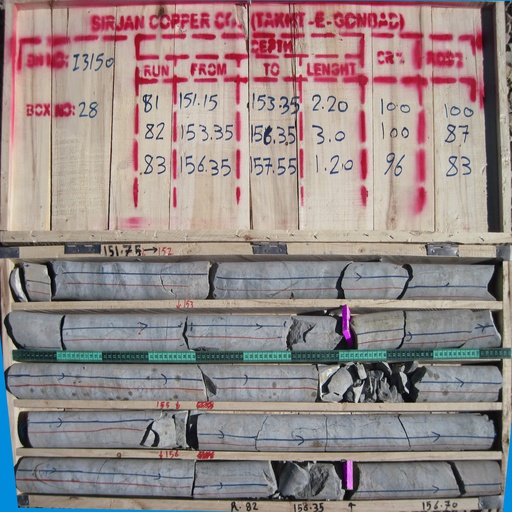 SIRJAN COPPER CO. (TAKHT-E-GONBAD)
DEPTH
BH NO: I3150 RUN FROM TO LENGHT CR% RQD%
BOX NO: 28 81 151.15 153.35 2.20 100 100
82 153.35 156.35 3.0 100 87
83 156.35 157.55 1.20 96 83
151.75 → 152
↓153
155
↓156
R. 82 156.35 ↑ 156.70